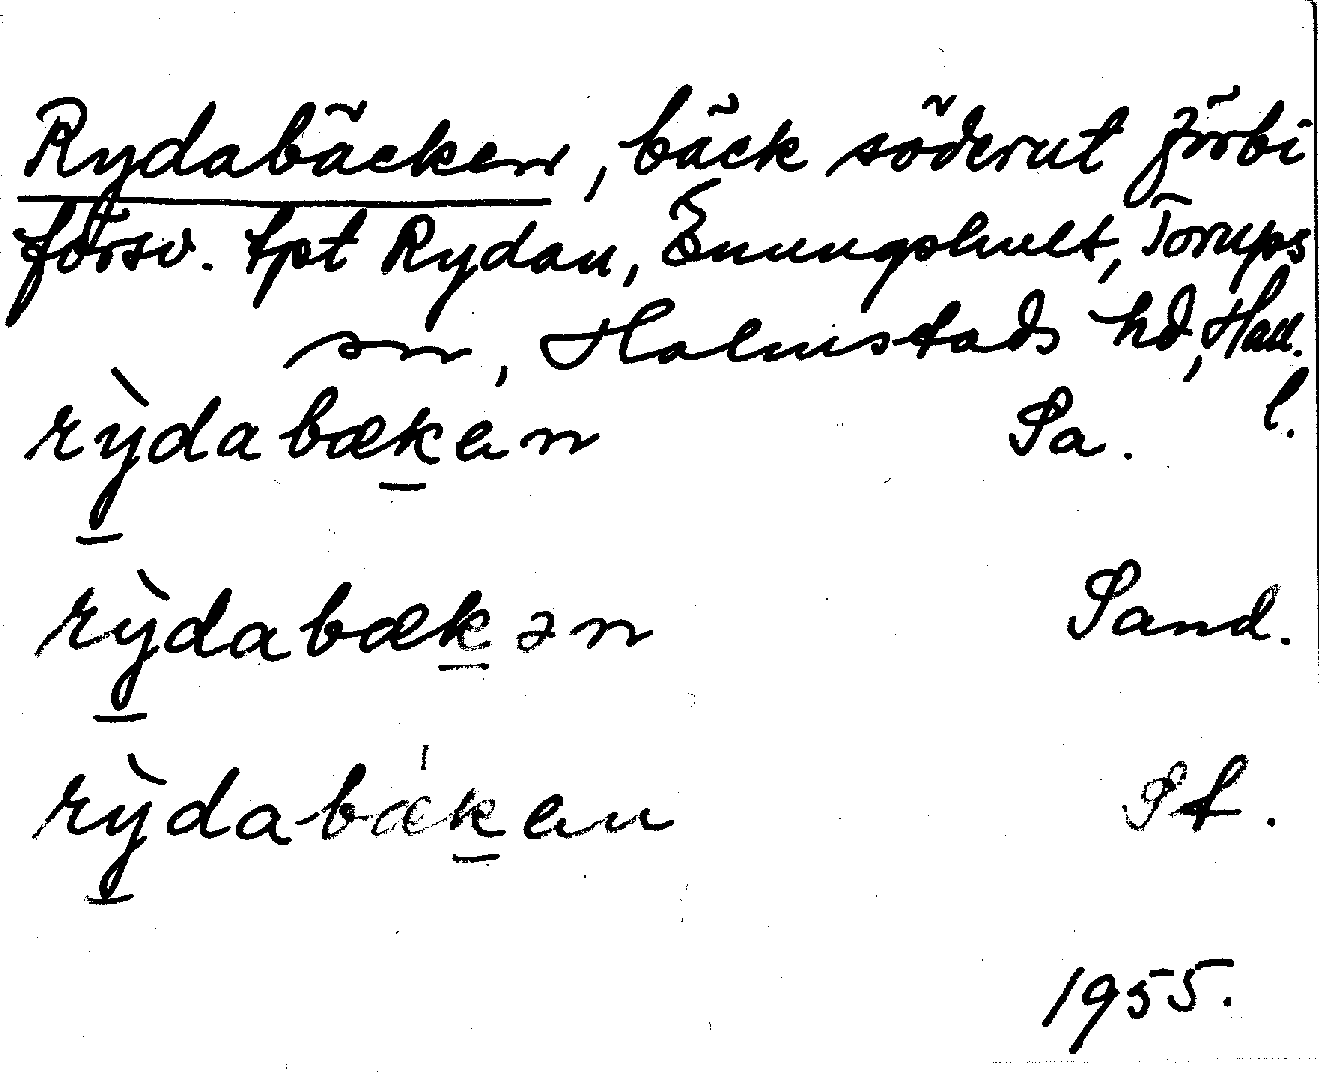 Rydabäcken, bäck söderut förbi
försv. tpt Rydan, Enungshult, Torups
sn, Halmstads hd, Hall.
l.
rỳdabækan Sa.
rỳdabækən Sand.
rỳdabækan Pf.
1955.